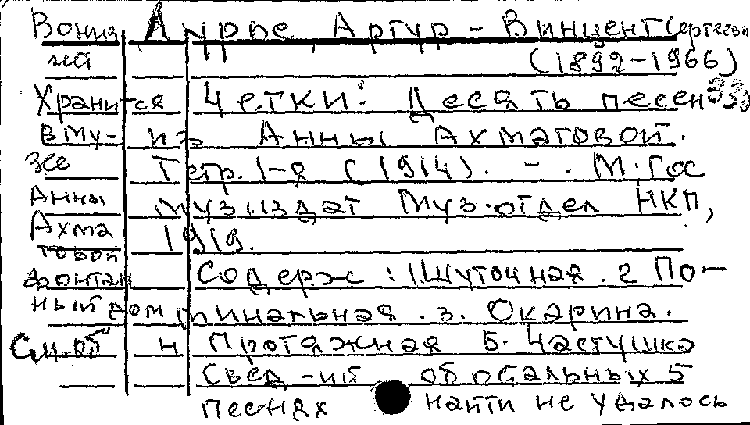 Лурье, Артур - Винцент Сергеевич
(1892-1966)
Четки: Десять песен
из Анны Ахматовой.
Тетр. 1-я (1914). - . М. Гос
музиздат Муз. отдел НКП,
1919.
Содерж: 1 Шуточная. 2 По-
минальная. 3. Окарина.
4 Протяжная 5. Частушка
Свед-ий об остальных 5
песнях найти не удалось
Хранится
в Му-
зее
Анны
Ахма
товой
фонтан
ный дом